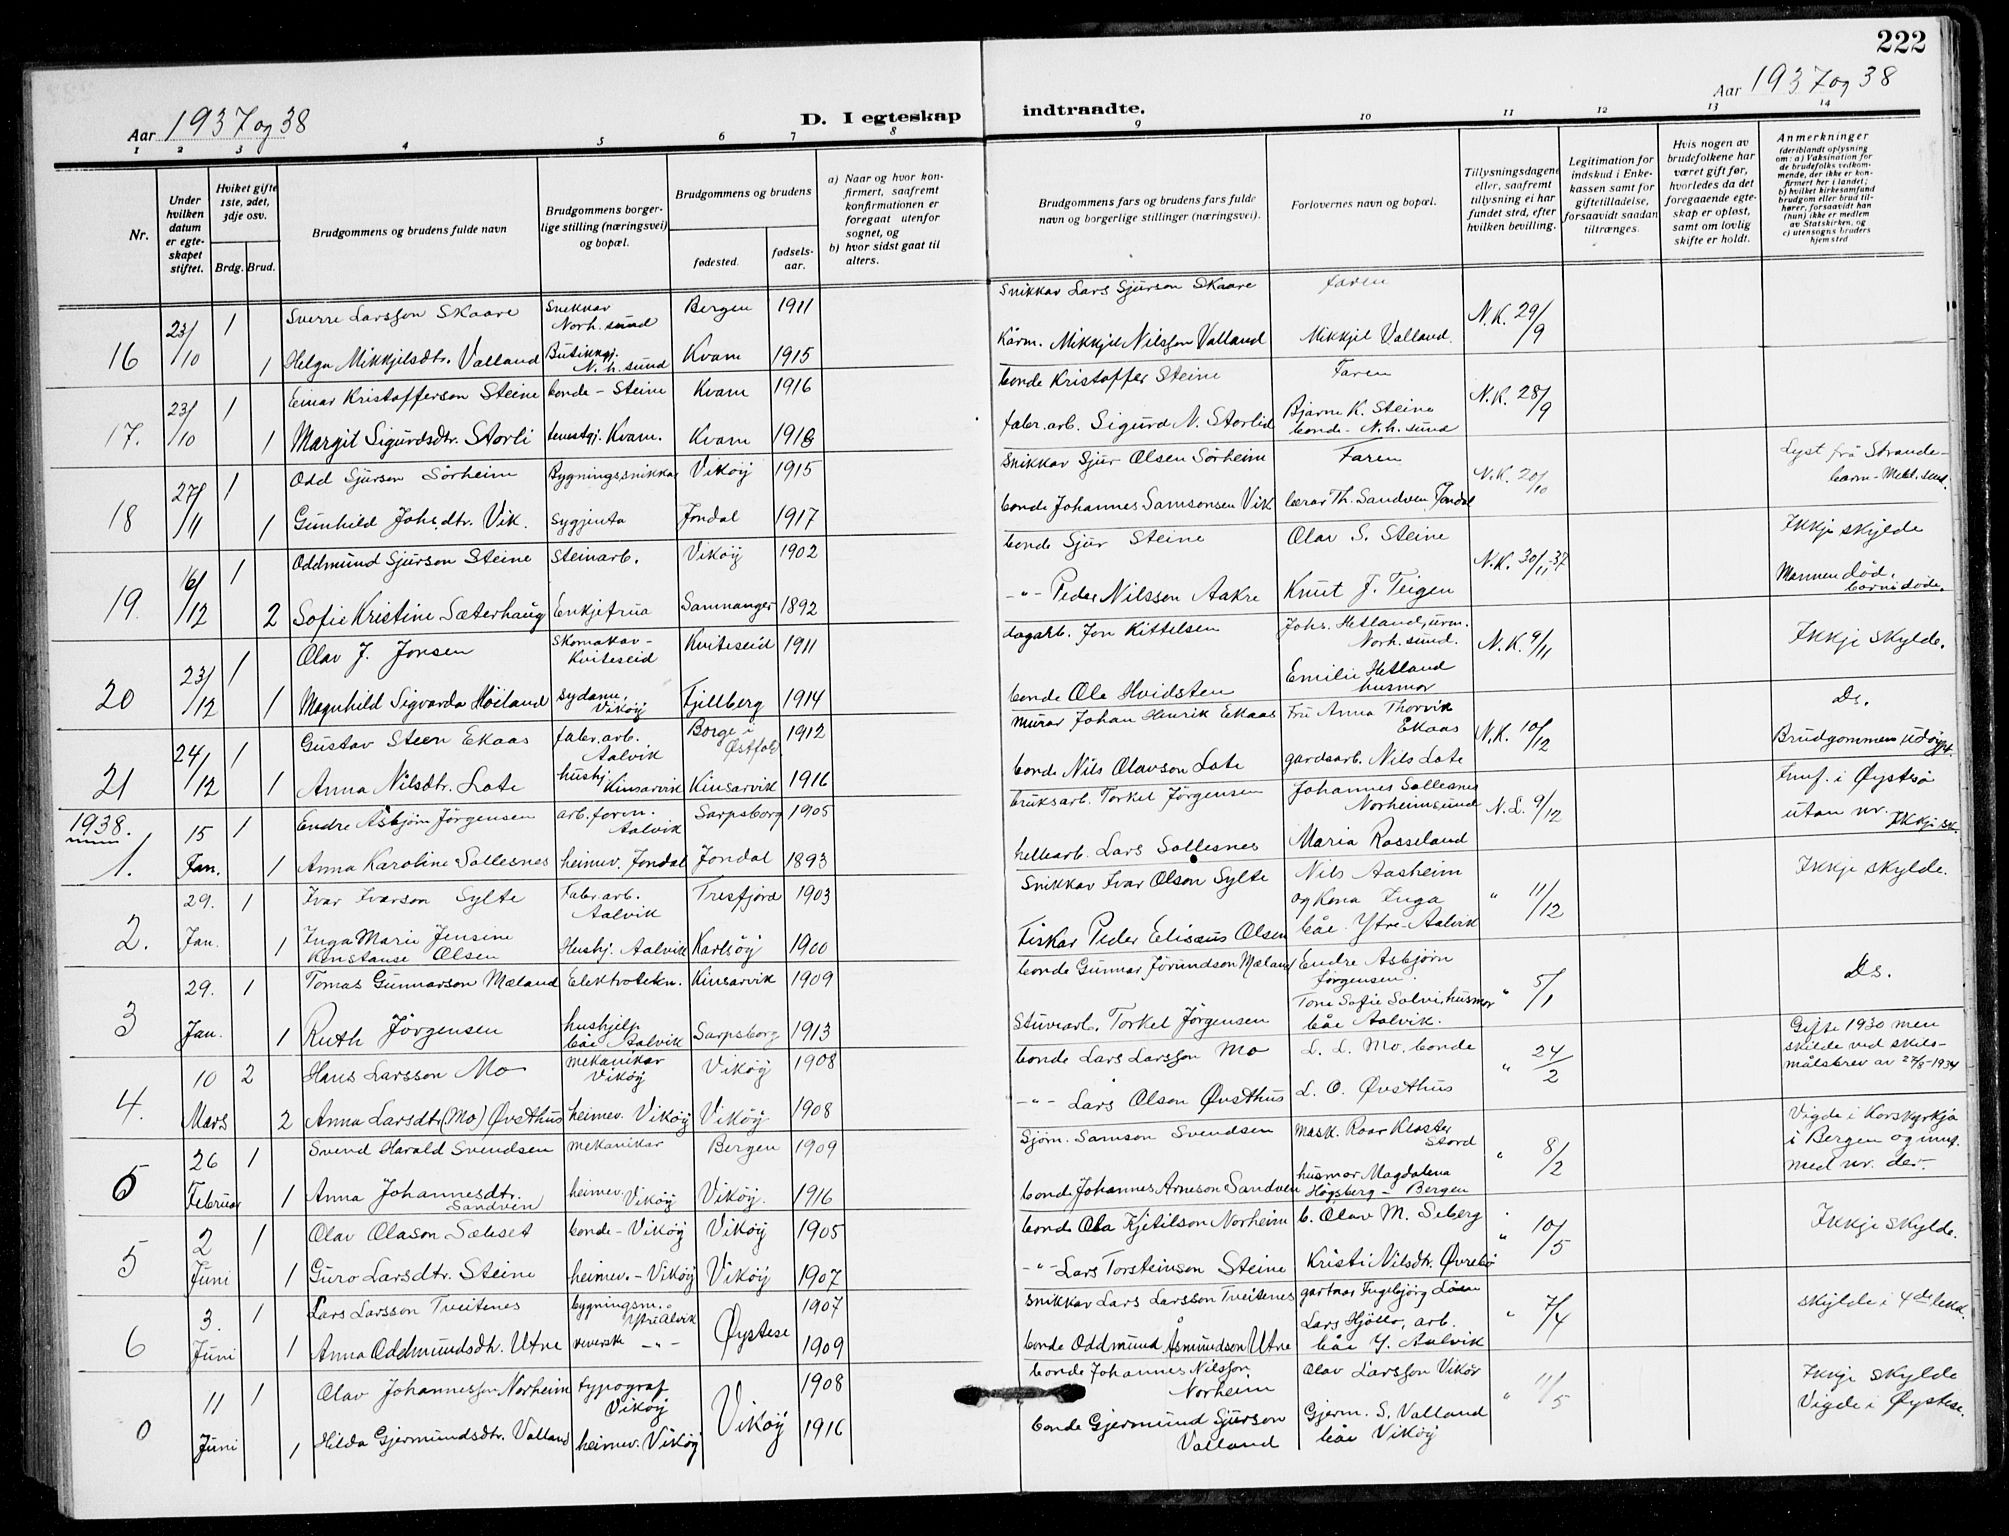 222
Aar 1937 og 38
D. I egteskap
indtraadte.
Aar 1937 og 38
1 2 3 4 5 6 7 8 9 10 11 12 13 14
Nr.
Under hvilken datum er egteskapet stiftet.
Hviket gifte 1ste, 2det, 3dje osv.
Brdg. Brud.
Brudgommens og brudens fulde navn
Brudgommens borgerlige stilling (næringsvei) og bopæl.
Brudgommens og brudens
fødested.
fødselsaar.
a) Naar og hvor konfirmert, saafremt konfirmationen er foregaat utenfor sognet, og
b) hvor sidst gaat til alters.
Brudgommens fars og brudens fars fulde navn og borgerlige stillinger (næringsvei).
Forlovernes navn og bopæl.
Tillysningsdagene eller, saafremt tillysning ei har fundet sted, efter hvilken bevilling.
Legitimation for indskud i Enkekassen samt for giftetilladelse, forsaavidt saadan tiltrænges.
Hvis nogen av brudefolkene har været gift før, hvorledes da det foregaaende egteskap er opløst, samt om lovlig skifte er holdt.
Anmerkninger (deriblandt oplysning om: a) Vaksination for de brudefolks vedkommende, der ikke er konfirmert her i landet; b) hvilket kirkesamfund brudgom eller brud tilhører, forsaavidt han (hun) ikke er medlem av Statskirken, og c) utensogns bruders hjemsted
16 23/10 1 Sverre Larsson Skaare Snikkar Norh.sund Bergen 1911 Snikkar Lars Sjurson Skaare Faren N.K. 29/9
1 Helga Mikkjilsdtr. Valland Butikkgj. N.h.sund Kvam 1915 Kårm. Mikkjil Nilsson Valland Mikkjil Valland.
17. 23/10 1 Einar Kristofferson Steine bonde - Steine Kvam 1916 bonde Kristoffer Steine Faren N.K. 28/9
1 Margit Sigurdsdtr. Storli tenestgj. Kvam. Kvam 1918 fabr.arb. Sigurd N. Storlid Bjarne K. Steine bonde - N.h.sund
18 27/11 1 Odd Sjurson Sørheim Bygningssnikkar Vikøy 1915 Snikkar Sjur Olsen Sørheim Faren N.K. 20/10 Lyst frå Strandebarm - Mekl. sund.
1 Gunhild Johs.dtr. Vik. sygjenta Jondal 1917 bonde Johannes Samsonsen Vik lærar Th. Sandven, Jondal
19. 16/12 1 Oddmund Sjurson Steine Steinarb. Vikøy 1902 bonde Sjur Steine Olav S. Steine N.K. 30/11-37 Ikkje skylde
2 Sofie Kristine Sæterhaug Enkjefrua Samnanger 1892 -"- Peder Nilsson Aakre Knut J. Teigen Mannen død, borni døde.
20 23/12 1 Olav J. Jonsen Skomakar - Kviteseid Kviteseid 1911 dagarb. Jon Kittelsen Johs. Hetland, urm. Norh.sund. N.K. 9/11 Ikkje skylde.
1 Magnhild Sigvarda Høiland sydame, Vikøy Fjellberg 1914 bonde Ole Hvidsten Emilie Hetland husmor
21 24/12 1 Gustav Steen Ekaas fabr.arb. Aalvik Borge i Østfold 1912 murar Johan Henrik Ekaas Fru Anna Thorvik Ekaas N.K. 10/12 Ds.
1 Anna Nilsdtr. Lote hushj. Kinsarvik Kinsarvik 1916 bonde Nils Olavson Lote gardsarb. Nils Lote Brudgommen udøypt.
1938.
1. 15 Jan. 1 Endre Asbjørn Jørgensen arb.form. Aalvik Sarpsborg 1905 bruksarb. Torkel Jørgensen Johannes Sollesnes Norheimsund N.L. 9/12 Innf. i Øystesø utan nr. Ikkje sk.
1 Anna Karoline Sollesnes heimev. Jondal Jondal 1893 hellearb. Lars Sollesnes Maria Rosseland
2. 29. Jan. 1 Ivar Ivarson Sylte Fabr.arb. Aalvik Tresfjord 1903 Snikkar Ivar Olson Sylte Nils Aasheim og Kona Inga " 11/12 Ikkje skylde.
1 Inga Marie Jensine Konstanse Olsen Hushj. Aalvik Karlsøy 1900 Fiskar Peder Elisæus Olsen båe Ytre-Aalvik
3 29. Jan. 1 Tomas Gunnarson Mæland Elektrotekn. Kinsarvik 1909 bonde Gunnar Jørundson Mæland Endre Asbjørn Jørgensen. " 5/1 Ds.
1 Ruth Jörgensen hushjelp båe Aalvik Sarpsborg 1913 Stuvearb. Torkel Jørgensen Tone Sofie Solvi, husmor båe Aalvik.
4. 10 Mars 2 Hans Larsson Mo mekanikar Vikøy Vikøy 1908 bonde Lars Larsson Mo L. L. Mo, bonde " 24/2 Gifte 1930 men skilde ved skilsmålsbrev av 27/8-1934
2 Anna Larsdtr (Mo) Øvsthus heimev. Vikøy Vikøy 1908 -"- Lars Olson Øvsthus L. O. Øvsthus
5 26 Februar 1 Svend Harald Svendsen mekanikar Bergen 1909 Sjøm. Samson Svendsen mask. Roar Kloster Stord " 8/2 Vigde i Korskyrkja i Bergen og innf. med nr. der.
1 Anna Johannesdtr. Sandven heimev. Vikøy Vikøy. 1916 bonde Johannes Arneson Sandven husmor Magdalena Høgsberg - Bergen
5 2 Juni 1 Olav Olason Sæbset bonde - Vikøy Vikøy 1905 bonde Ola Kjetilson Norheim b. Olav M. Seberg " 10/5 Ikkje skylde.
1 Guro Larsdtr. Steine heimev. - Vikøy Vikøy 1907 -"- Lars Torsteinson Steine Kristi Nilsdtr. Øvrebø
6 3. Juni 1 Lars Larsson Tveitenes bygningsm. Ytre Alvik Øystese 1907 Snikkar Lars Larsson Tveitenes gartnar Ingebjørg " 7/4 skylde i 4de lekk.
1 Anna Oddmundsdtr. Utne veversk -"- 1909 bonde Oddmund Åsmundson Utne Lars Hjøllo, arb. båe Y. Aalvik
0 11 Juni 1 Olav Johannesson Norheim typograf Vikøy Vikøy 1908 bonde Johannes Nilsson Norheim Olav Larsson Vikør " 11/5 Ikkje skylde Vigde i Øystese.
1 Hilda Gjermundsdtr. Valland heimev. Vikøy 1916 bonde Gjermund Sjurson Valland Gjerm. S. Valland båe Vikøy